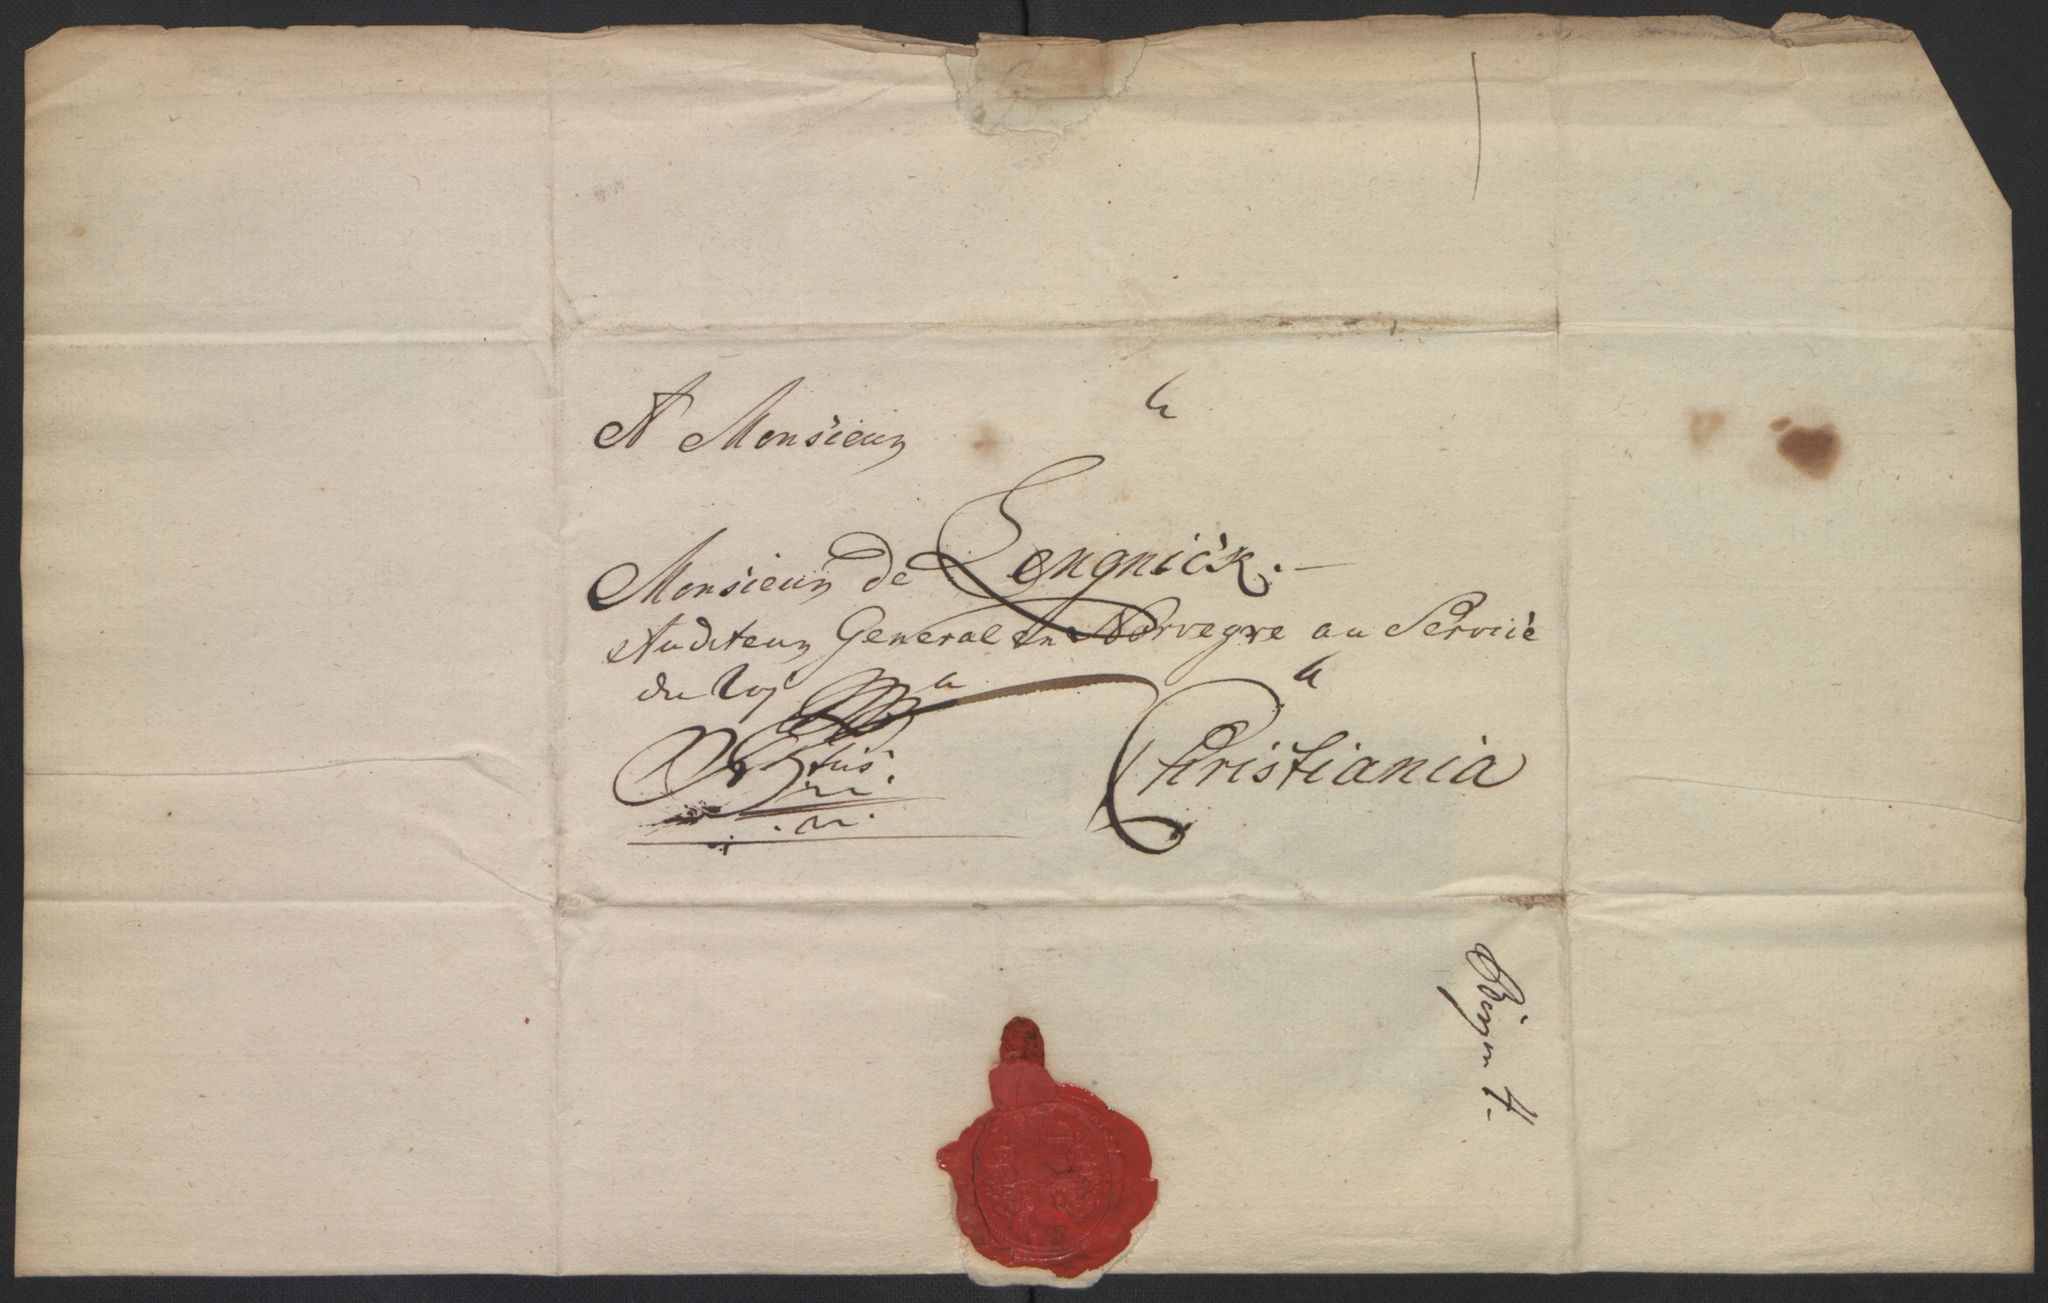 A Monsieur
Monsieur de Lengnick.
Auditeur General en Norvegre au Service
du Roj
a
a
Christiania
Bergen 4.